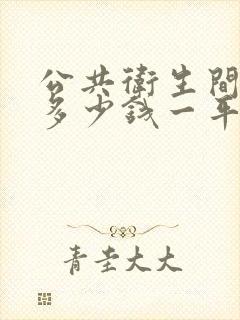 公共衛生間
多少錢一年
青圭大大